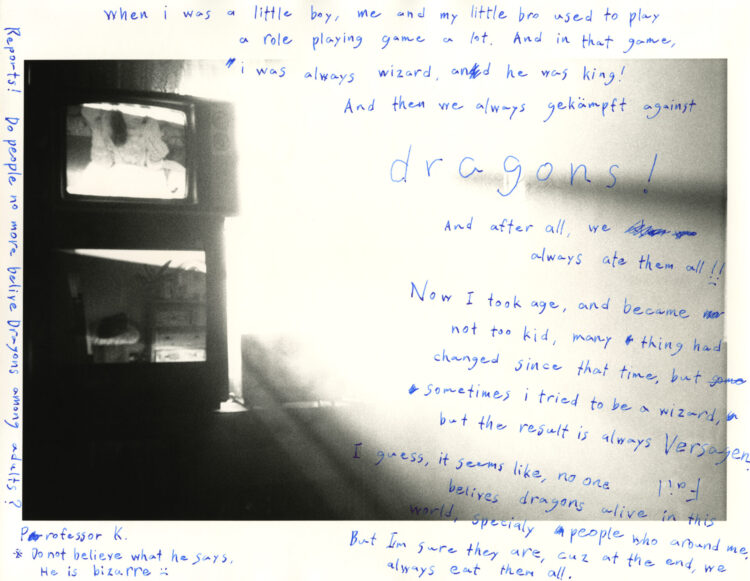 When i was a little boy, me and my little bro used to play
a role playing game a lot. And in that game,
i was always wizard, and he was king!
And then we always gekämpft against
dragons!
And after all, we
always ate them all!!
Now I took age, and became
not too kid, many thing had
changed since that time, but
sometimes i tried to be a wizard,
but the result is always Versagen.
Fail
I guess, it seems like, no one
belives dragons alive in this
world, specialy people who around me.
But Im sure they are, cuz at the end, we
always eat them all.
Reports! Do people no more belive Dragons among adults?
Professor K.
* Do not believe what he says,
He is bizarre